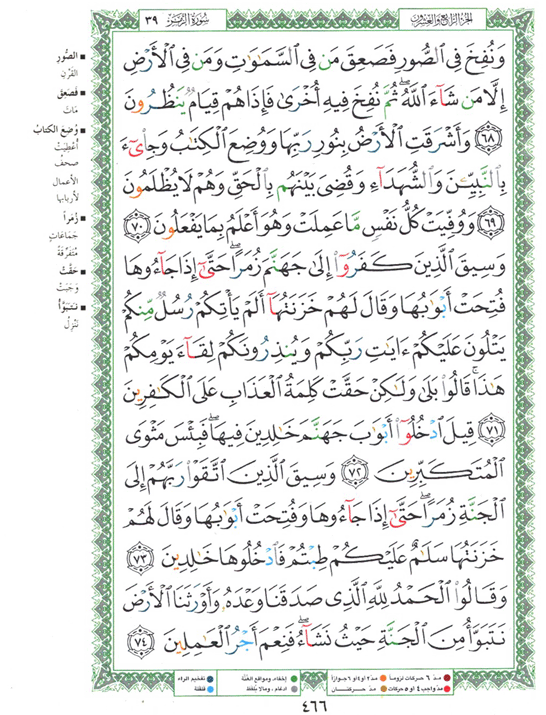 الجزء الرابع والعشرون
سورة الزمر ٣٩
وَنُفِخَ فِى ٱلصُّورِ فَصَعِقَ مَن فِى ٱلسَّمَٰوَٰتِ وَمَن فِى ٱلْأَرْضِ
إِلَّا مَن شَآءَ ٱللَّهُ ۖ ثُمَّ نُفِخَ فِيهِ أُخْرَىٰ فَإِذَا هُمْ قِيَامٌ يَنظُرُونَ
﴿٦٨﴾ وَأَشْرَقَتِ ٱلْأَرْضُ بِنُورِ رَبِّهَا وَوُضِعَ ٱلْكِتَٰبُ وَجِا۟ىٓءَ
بِٱلنَّبِيِّـۧنَ وَٱلشُّهَدَآءِ وَقُضِىَ بَيْنَهُم بِٱلْحَقِّ وَهُمْ لَا يُظْلَمُونَ
﴿٦٩﴾ وَوُفِّيَتْ كُلُّ نَفْسٍ مَّا عَمِلَتْ وَهُوَ أَعْلَمُ بِمَا يَفْعَلُونَ ﴿٧٠﴾
وَسِيقَ ٱلَّذِينَ كَفَرُوٓا۟ إِلَىٰ جَهَنَّمَ زُمَرًا ۖ حَتَّىٰٓ إِذَا جَآءُوهَا
فُتِحَتْ أَبْوَٰبُهَا وَقَالَ لَهُمْ خَزَنَتُهَآ أَلَمْ يَأْتِكُمْ رُسُلٌ مِّنكُمْ
يَتْلُونَ عَلَيْكُمْ ءَايَٰتِ رَبِّكُمْ وَيُنذِرُونَكُمْ لِقَآءَ يَوْمِكُمْ
هَٰذَا ۚ قَالُوا۟ بَلَىٰ وَلَٰكِنْ حَقَّتْ كَلِمَةُ ٱلْعَذَابِ عَلَى ٱلْكَٰفِرِينَ
﴿٧١﴾ قِيلَ ٱدْخُلُوٓا۟ أَبْوَٰبَ جَهَنَّمَ خَٰلِدِينَ فِيهَا ۖ فَبِئْسَ مَثْوَى
ٱلْمُتَكَبِّرِينَ ﴿٧٢﴾ وَسِيقَ ٱلَّذِينَ ٱتَّقَوْا۟ رَبَّهُمْ إِلَى
ٱلْجَنَّةِ زُمَرًا ۖ حَتَّىٰٓ إِذَا جَآءُوهَا وَفُتِحَتْ أَبْوَٰبُهَا وَقَالَ لَهُمْ
خَزَنَتُهَا سَلَٰمٌ عَلَيْكُمْ طِبْتُمْ فَٱدْخُلُوهَا خَٰلِدِينَ ﴿٧٣﴾
وَقَالُوا۟ ٱلْحَمْدُ لِلَّهِ ٱلَّذِى صَدَقَنَا وَعْدَهُۥ وَأَوْرَثَنَا ٱلْأَرْضَ
نَتَبَوَّأُ مِنَ ٱلْجَنَّةِ حَيْثُ نَشَآءُ ۖ فَنِعْمَ أَجْرُ ٱلْعَٰمِلِينَ ﴿٧٤﴾
الصُّورِ
القَرْنِ
فصَعِقَ
مَاتَ
وُضِعَ الكتابُ
أُعْطِيَتْ
صحفُ
الأعمال
لأربابها
زُمَراً
جَمَاعَاتٍ
مُتَفَرِّقَةً
حَقَّتْ
وَجَبَتْ
نتبَوَّأُ
نَنْزِلُ
مدّ ٦ حركات لزوماً
مدّ ٢ أو ٤ أو ٦ جوازاً
إخفاء، ومواقع الغنّة
تفخيم الراء
مدّ واجب ٤ أو ٥ حركات
مدّ حركتان
ادغام، وما لا يلفظ
قلقلة
٤٦٦